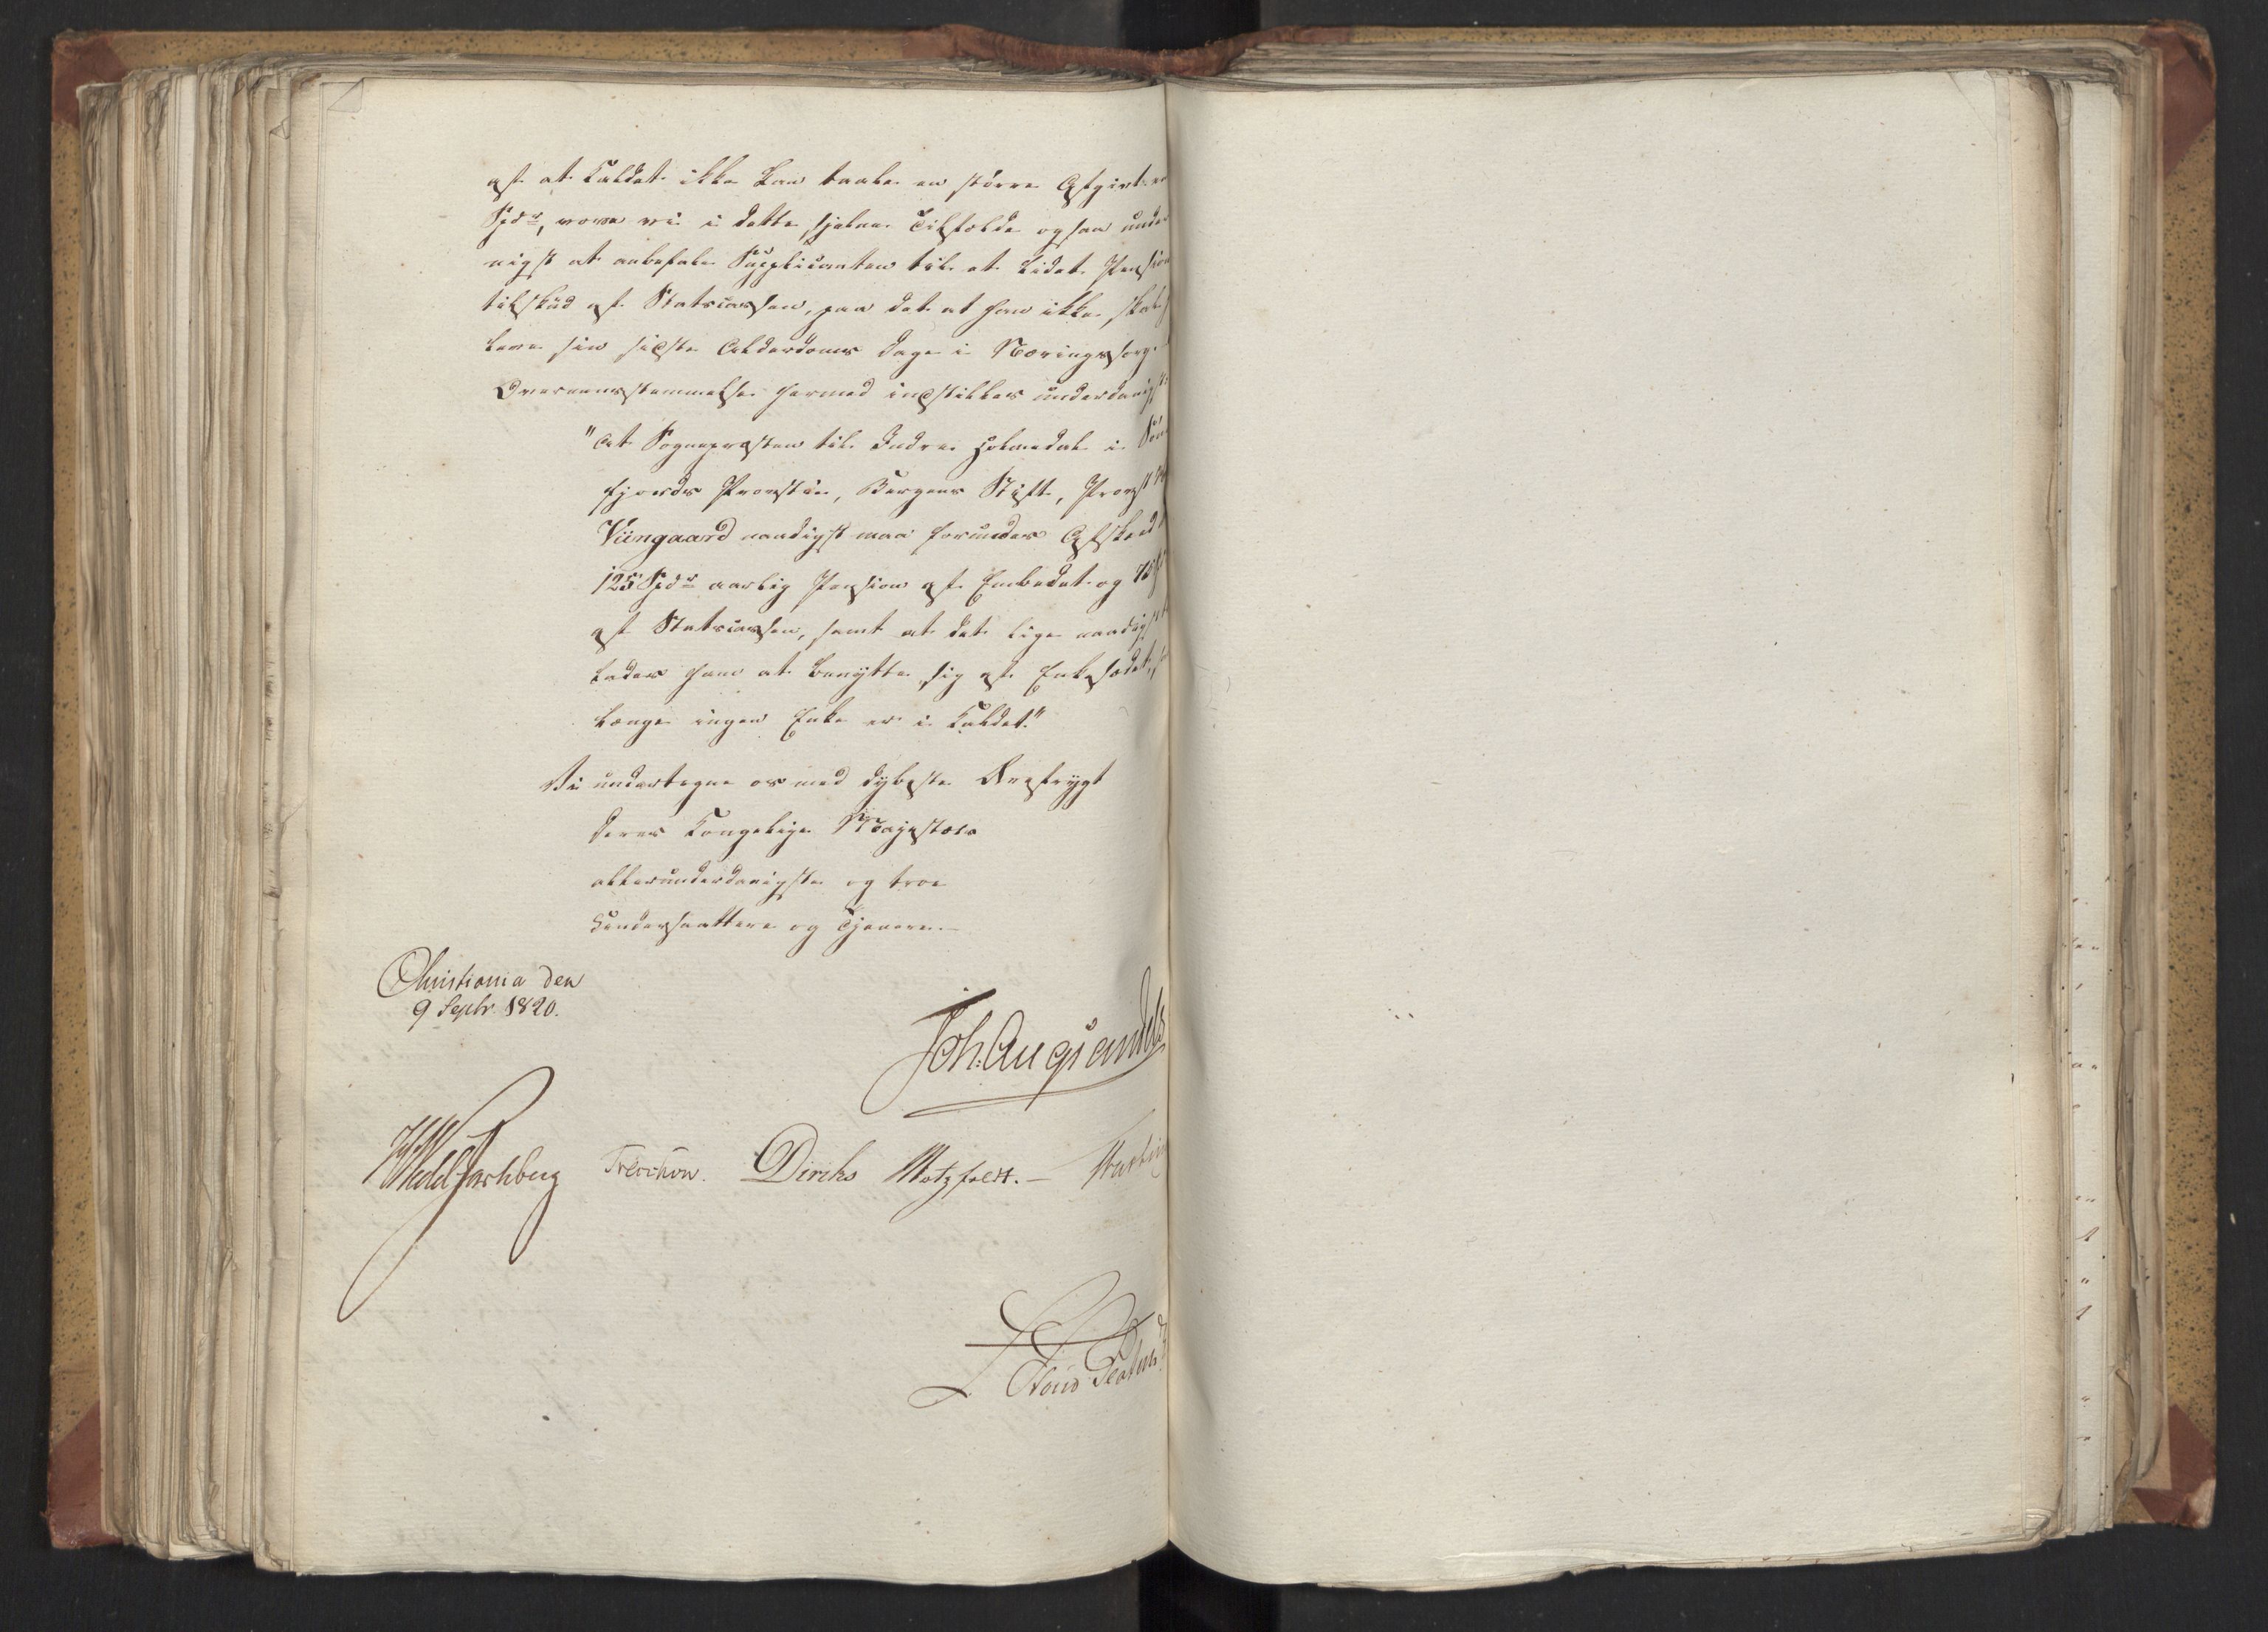 af at Kaldet ikke kan taale en större Afgivt en
Spdr, vove vi i dette sjelne Tilfælde ogsaa under
nigst at anbefale Supplicanten til et lidet Pension
tilskud af Statscassen, paa det at han ikke skal
leve sin sidste Alderdoms Dage i Næringssorg.
Overeensstemmelse hermed indstilles underdanigst
"At Sognepræsten til Indre Holmedal i Sönd
fjords Provstie, Bergens Stift, Provst
Viingaard naadigst maa forundes Afskeed
125 Spdr aarlig Pension af Embedet og 75
af Statscassen, samt at det lige naadigst
lades ham at benytte sig af Enkesædet, saa
længe ingen Enke er i Kaldet."
Vi undertegne os med dybeste Ærefrygt
Deres Kongelige Majestæts
allerunderdanigste og troe
Undersaattere og Tjenere.
Christiania den
9 Septr 1820.
Joh: Aug Sandels
Wedel Jarlsberg Treschow. Diriks Motzfeldt.